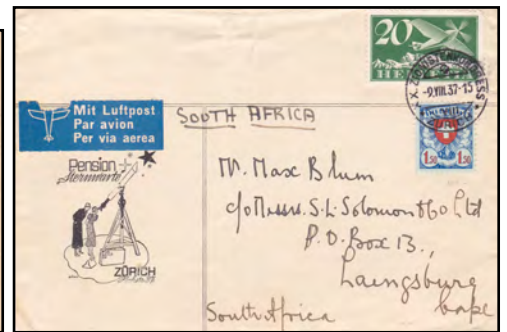 20
HELVETIA
X. ZIONISTENKONGRESS
-9.VIII.37-15
ZÜRICH
1.50 1.50
Mit Luftpost
Par avion
Per via aerea
SOUTH AFRICA
Pension
Sternwarte
ZÜRICH
Mr. Max Blum
c/o Messrs. S. L. Solomon & Co Ltd
P. O. Box 13.,
Laingsburg
Cape
South Africa